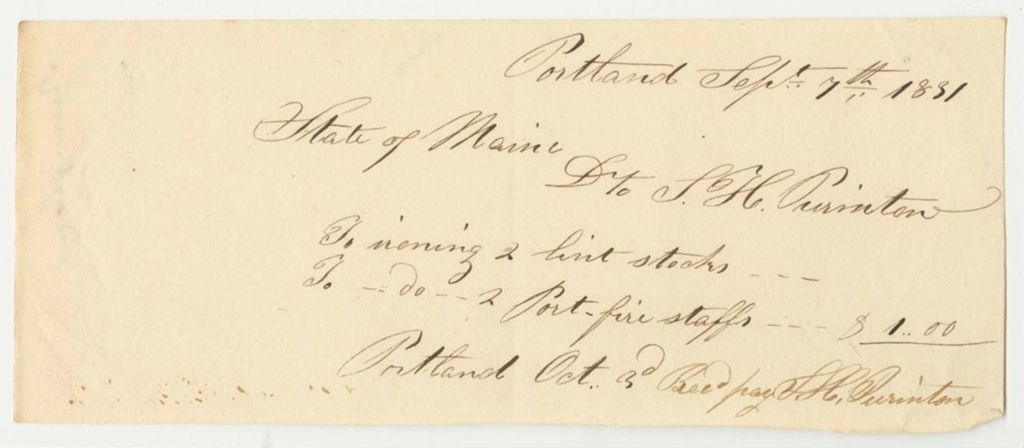 Portland Sept. 7th 1831
State of Maine
Dr to S. H. Purinton
To ironing 2 lint stocks - - -
To - do - 2 Port-fire staffs - - - - $ 1..00
Portland Oct. 3d Recd pay S H, Purinton